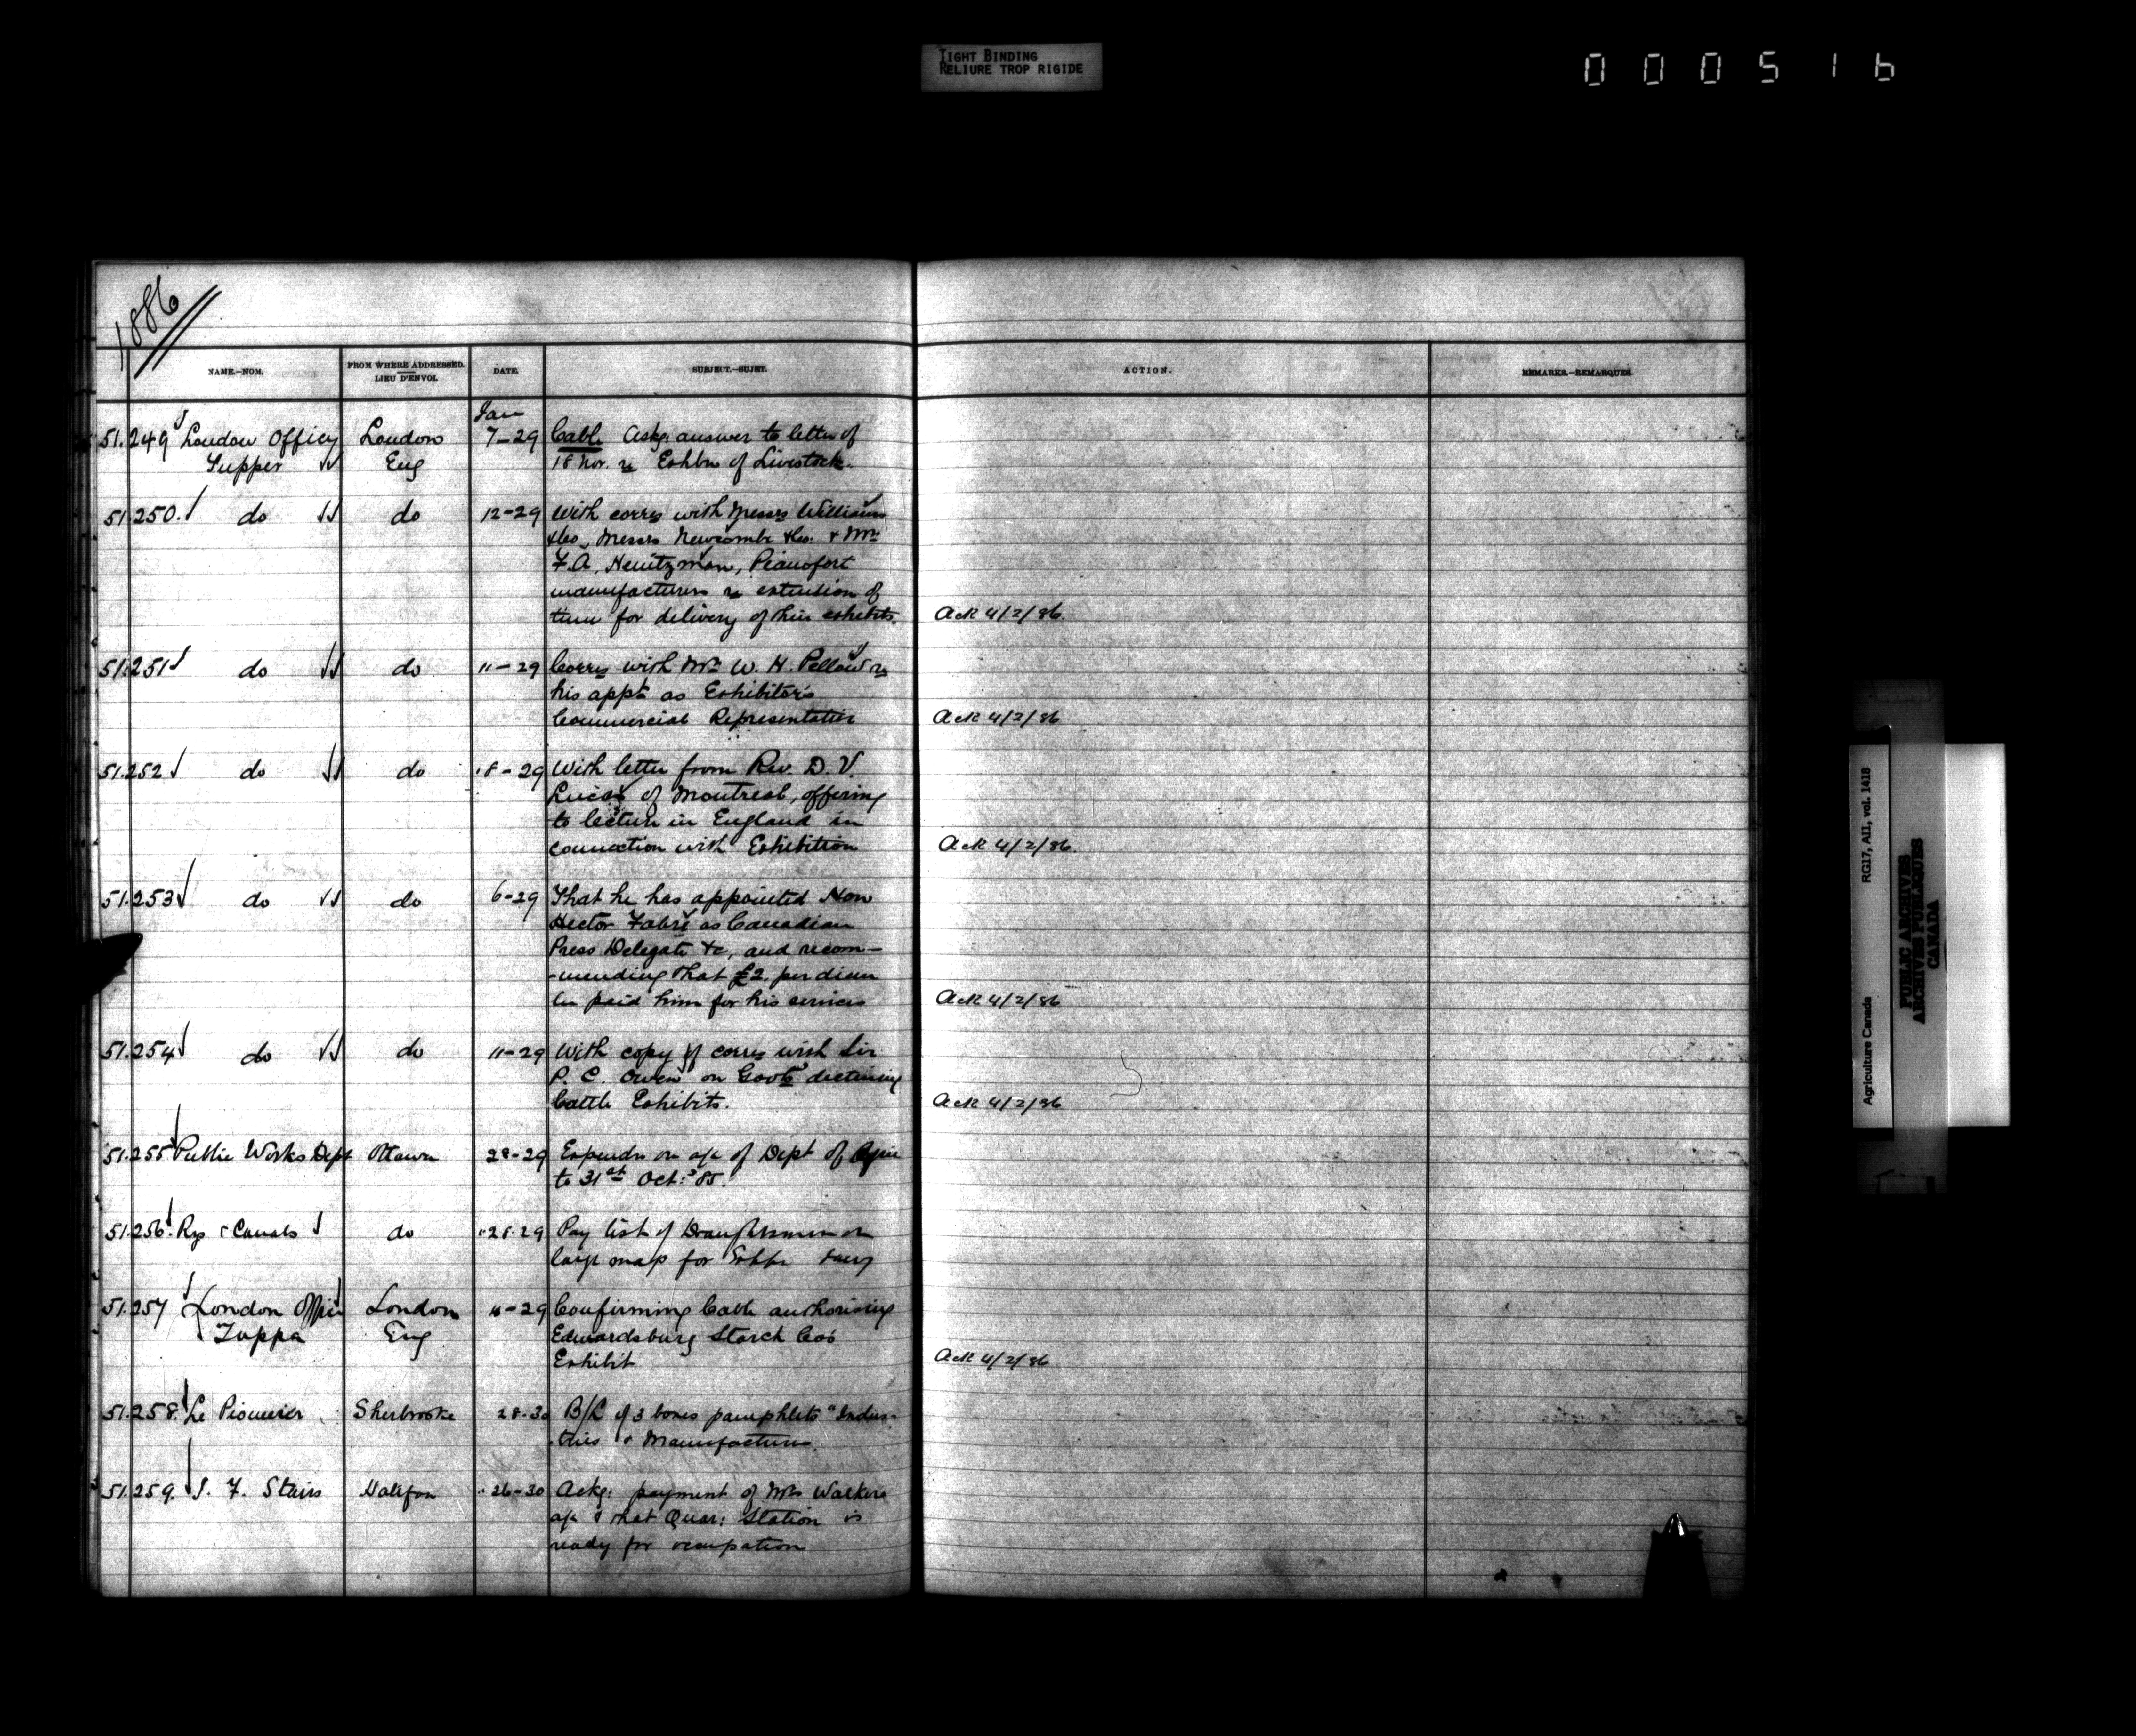 TIGHT BINDING
RELIURE TROP RIGIDE
000516
1886
NAME.—NOM.
FROM WHERE ADDRESSED.
LIEU D'ENVOI.
DATE.
SUBJECT.—SUJET.
ACTION.
REMARKS.—REMARQUES.
Jan
51.249 London Office London 7-29 Cable Askg. answer to letter of
Tupper Eng 18 Nov. re Exhbn of Livestock.
51.250. do do 12-29 With corres with Messrs Williams
&Co, Messrs Newcombe &Co. & Mr.
F.A. Heintzman, Pianofort
manufacturers re extension of
time for delivery of their exhibits. Ack 4/2/86.
51.251 do do 11-29 Corres with Mr. W. H. Pellow re
his appt. as Exhibitor's
Commercial Representative Ack 4/2/86
51.252 do do 18-29 With letter from Rev. D. V.
Lucas of Montreal, offering
to lecture in England in
connection with Exhibition Ack 4/2/86.
51.253 do do 6-29 That he has appointed Hon
Hector Fabre as Canadian
Press Delegate &c, and recom-
-mending that £2. per diem
be paid him for his services Ack 4/2/86
51.254 do do 11-29 With copy of corres with Sir
P. C. Owen on Govts' declining
Cattle Exhibits. Ack 4/2/86
51.255 Public Works Dept Ottawa 28-29 Expendre on a/c of Dept of Agric
to 31st Oct: '85.
51.256. Rys & Canals do "28.29 Pay list of Draughtsmen on
large map for
51.257 London Office London 11-29 Confirming Cable authorising
Tupper Eng Edwardsburg Starch Cos
Exhibit Ack 4/2/86
51.258. Le Pionnier Sherbrooke 28-30 B/L of 3 boxes pamphlets "Indus-
tries & Manufactures.
51.259. J. F. Stairs Halifax "26-30 Ackg: payment of Mrs Walkers
a/c & that Quar: Station is
ready for occupation
Agriculture Canada RG17, AII, vol. 1418
PUBLIC ARCHIVES
ARCHIVES PUBLIQUES
CANADA